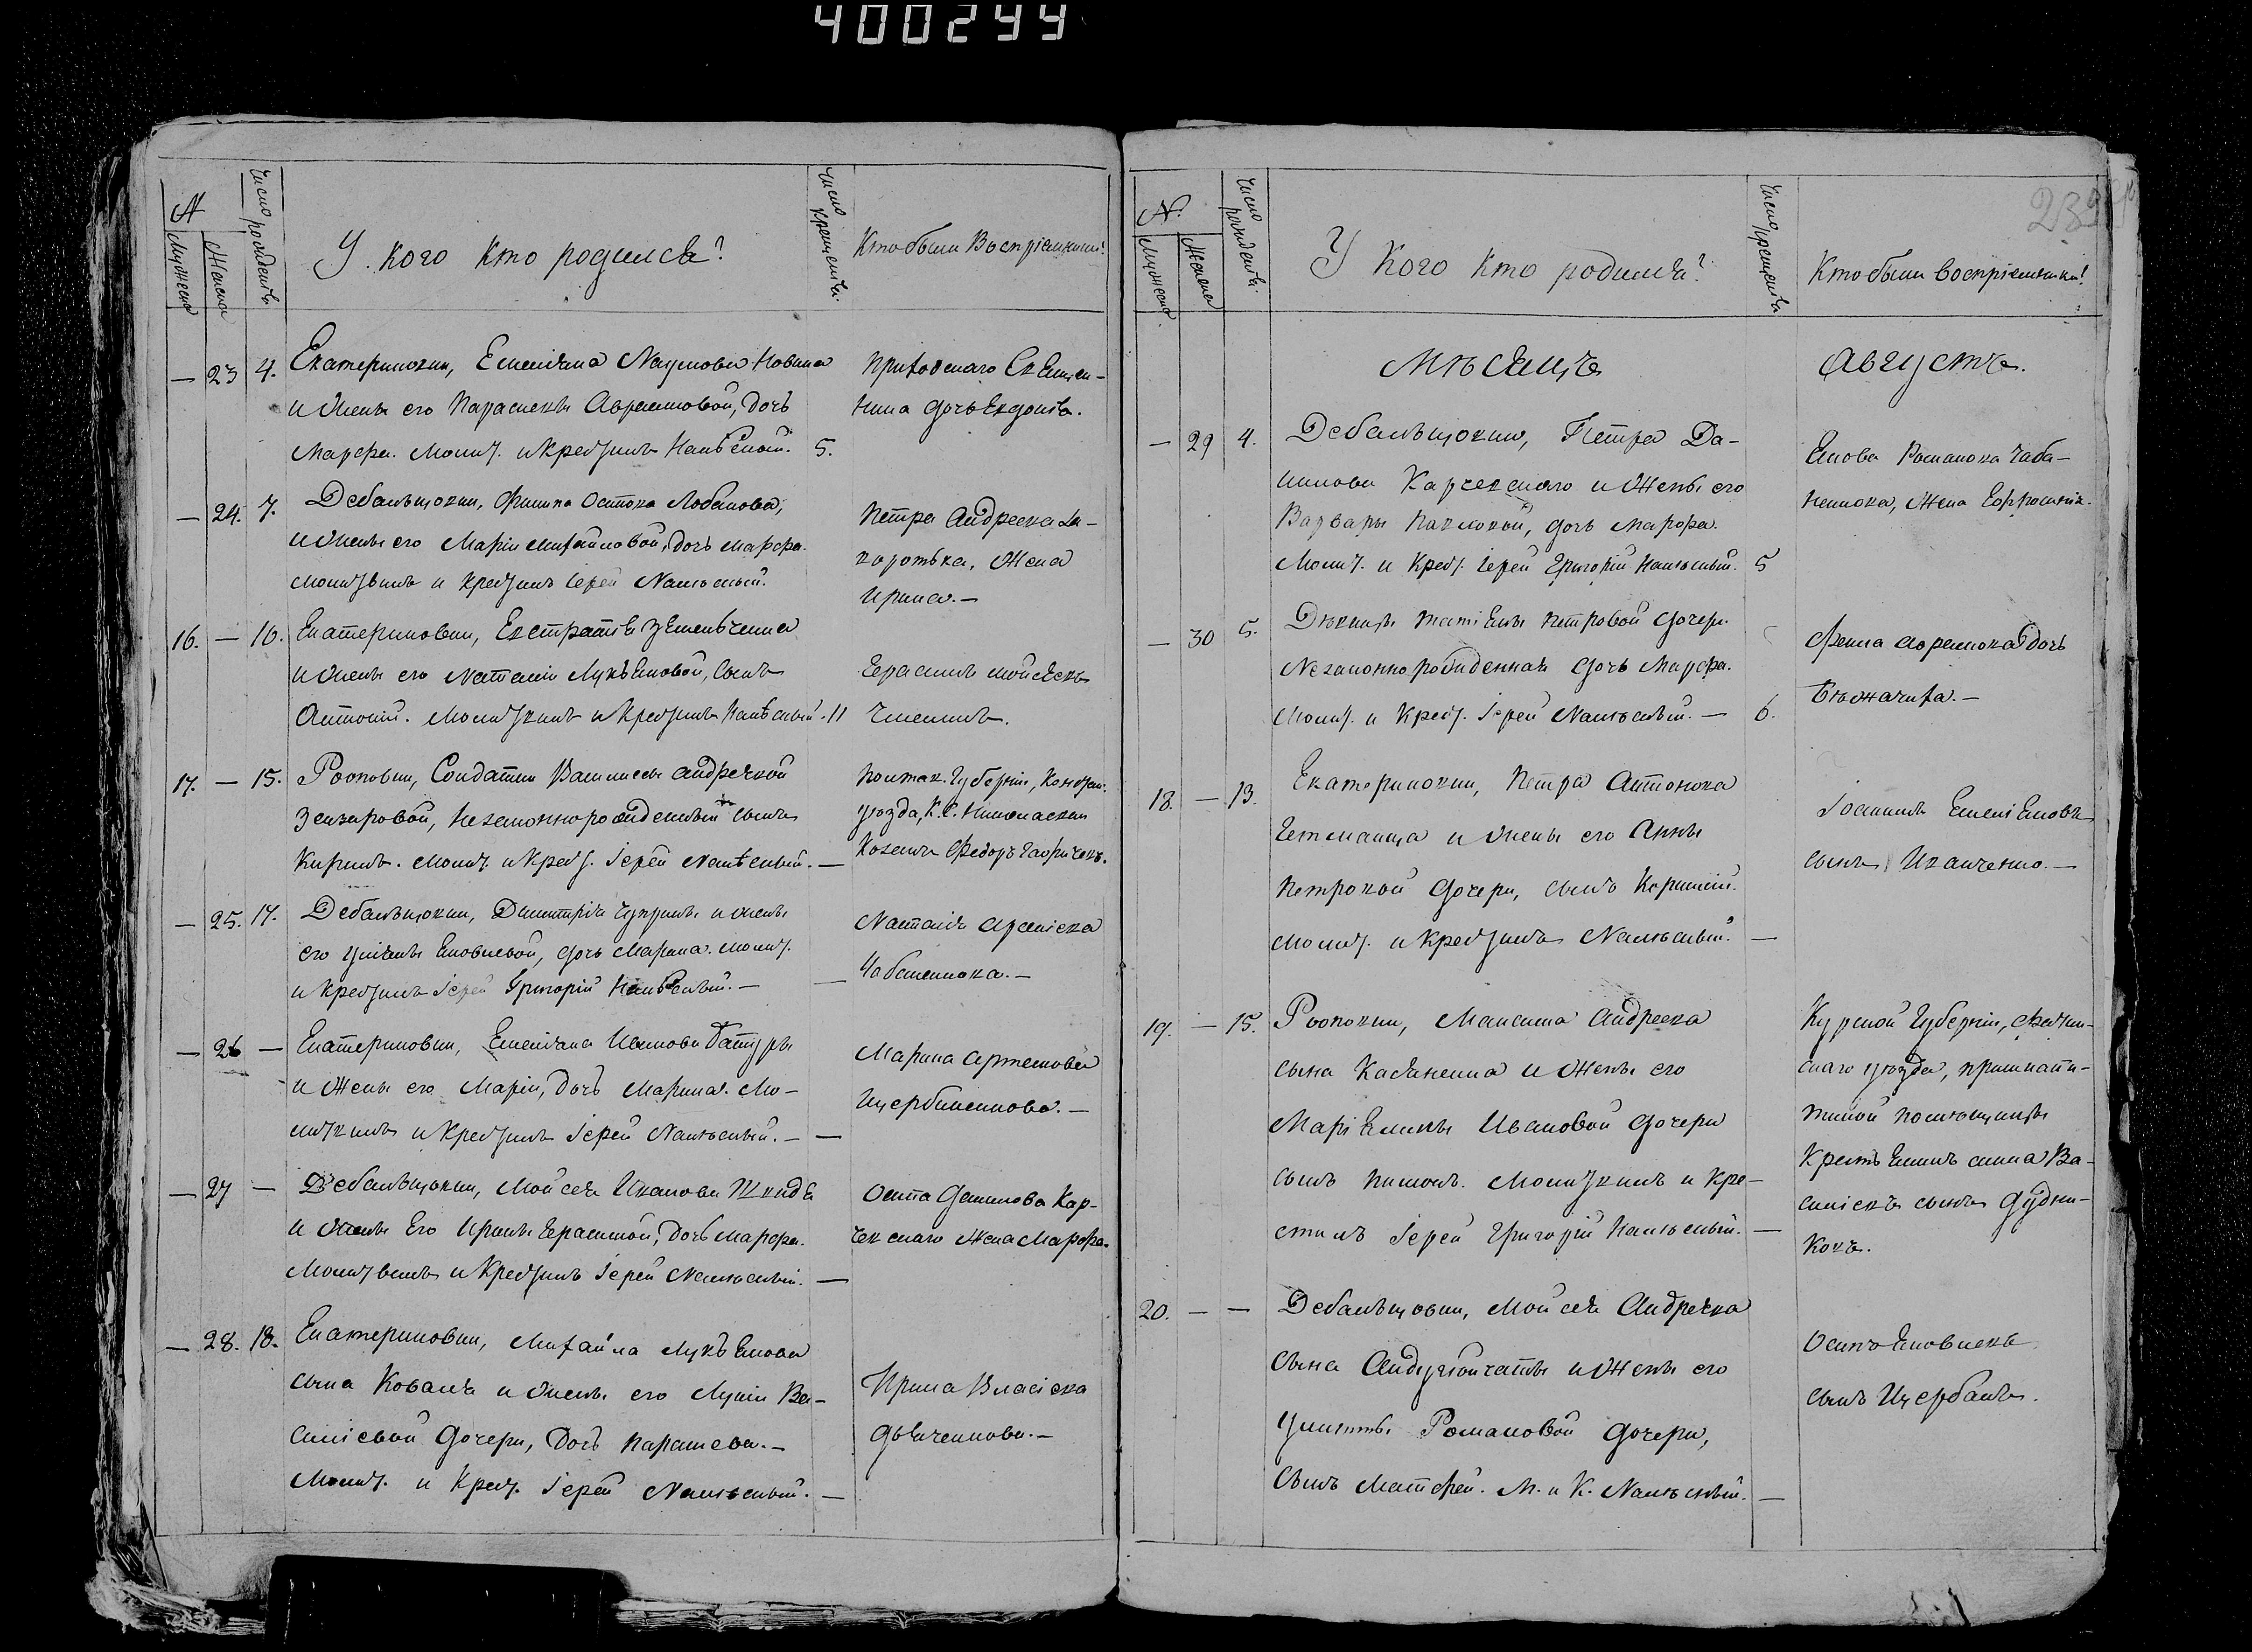 400244
№
Мужеска
Женска
Число рожденія
У кого кто родился?
Число крещенія
Кто были Воспріемники?
— 23 4. Екатериновки, Емеліана Наумова
и жены его Параскевы Аврамовой, дочь
Марфа. Молит. и крестилъ Налѣсный. 5.
дочь Евдокія.
— 24. 7. Дебальцовки, Филипа Осипова Лобанова,
и жены его Маріи Михайловой, дочь Марфа.
Молитвилъ и крестилъ Іерей Налѣсный.
Петра Андреева За-
коротька, Жена
Ирина.—
16. — 10. Екатериновки, Евстратія
и жены его Наталіи Лукьяновой, сынъ
Антоній. Молитвилъ и крестилъ Налѣсный. 11
Герасимъ Мойсеевъ
17. — 15. Роотовки, Солдатки Василисы Андреевой
незаконнорожденный сынъ
Кирилъ. Молит. и крест. Іерей Налѣсный. —
Полтав. Губерніи,
уѣзда,
Козакъ Федоръ
— 25. 17. Дебальцовки, Димитрія Чуприны и жены
его Уліаны Яковлевой, дочь Марина. Молит.
и крестилъ Іерей Григорій Налѣсный. — —
Наталія
Чабаненкова.—
— 26 — Екатериновки, Емеліана Иванова Батуры
и жены его Маріи, дочь Марина. Мо-
литвилъ и крестилъ Іерей Налѣсный. — —
Марина Артемова
Щербиненкова.—
— 27 — Дебальцовки, Мойсея Иванова
и жены Его Ирины Герасимой, дочь Марфа.
Молитвилъ и Крестилъ Іерей Налѣсный. —
Осипа Данилова Кар-
чевскаго Жена Марфа.
— 28. 18. Екатериновки, Михайла Лукьянова
сына Коваля и жены его Лукіи Ва-
силіевой дочери, дочь Параскева.—
Молит. и Крест. Іерей Налѣсный. —
Ирина Власіева
Дьяченкова.—
№.
Мужеска
Женска
Число рожденія.
У Кого Кто родился?
Число крещенія
Кто были воспріемники?
Мѣсяцъ Августъ.
— 29 4. Дебальцовки, Петра Да-
нилова Карчевскаго и Жены его
Варвары Павловой, дочь Марфа.
Молит. и Крест. Іерей Григорій Налѣсный. 5
Якова Романова Чаба-
ненкова, Жена Ефросинія.
— 30 5. Дѣвицы Татіяны Петровой дочери
Незаконно рожденная дочь Марфа.
Молит. и Крест. Іерей Налѣсный. — 6.
дочь
18. — 13. Екатериновки, Петра Антонова
Гетманца и жены его Анны
Петровой дочери, сынъ
Молит. и крестилъ Налѣсный. —
Іоаннъ Емеліановъ
сынъ Иванченко.—
19. — 15. Роотовки, Максима Андреева
сына Касьянена и Жены его
Маріамны Ивановой дочери
сынъ Пименъ. Молитвилъ и Кре-
стилъ Іерей Григорій Налѣсный. —
Курской Губерніи,
скаго уѣзда,
помѣщицы
Крестьянинъ Ва-
силіевъ сынъ Дудни-
ковъ.
20. — — Дебальцовки, Мойсея Андреева
сына и Жены его
Романовой дочери,
сынъ Матфей. М. и К. Налѣсный. —
Осипъ Яковлевъ
сынъ Щербакъ.